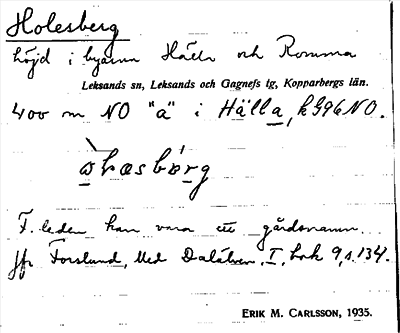 Holesberg
höjd i byarna Hälla och Romma
Leksands sn, Leksands och Gagnefs tg, Kopparbergs län.
400 m NO "a" i Hälla, k996NO.
F. leden kan vara ett gårdsnamn
jfr Forslund, Med Dalälven, I, bok 9, s. 134.
ERIK M. CARLSSON, 1935.